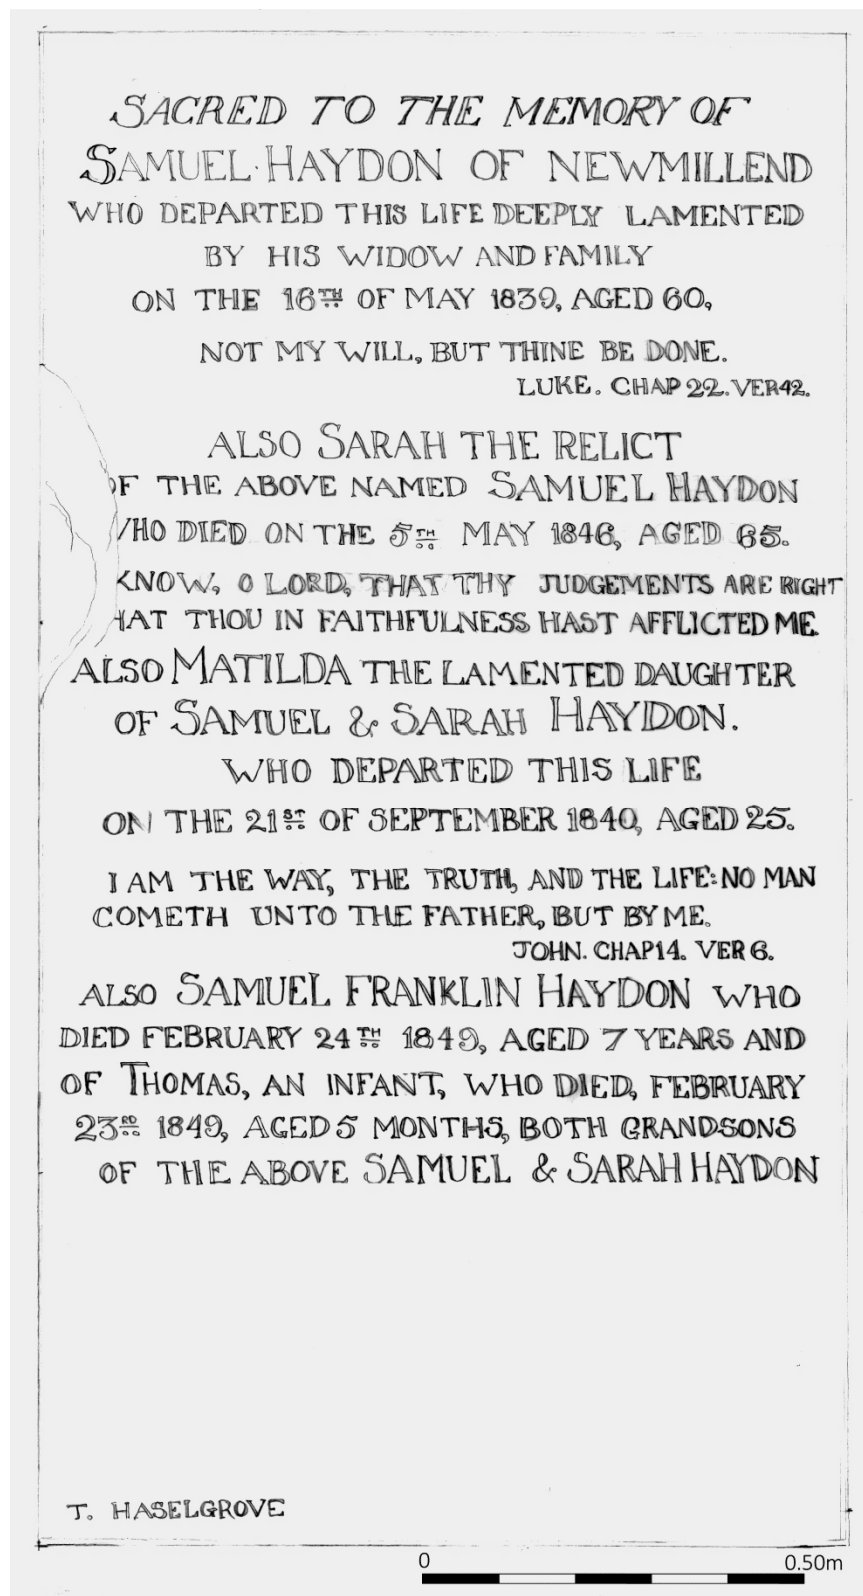 SACRED TO THE MEMORY OF
SAMUEL HAYDON OF NEWMILLEND
WHO DEPARTED THIS LIFE DEEPLY LAMENTED
BY HIS WIDOW AND FAMILY
ON THE 16TH OF MAY 1839, AGED 60,
NOT MY WILL, BUT THINE BE DONE.
LUKE. CHAP 22. VER 42.
ALSO SARAH THE RELICT
OF THE ABOVE NAMED SAMUEL HAYDON
WHO DIED ON THE 5TH MAY 1846, AGED 65.
KNOW, O LORD, THAT THY JUDGEMENTS ARE RIGHT
HAT THOU IN FAITHFULNESS HAST AFFLICTED ME.
ALSO MATILDA THE LAMENTED DAUGHTER
OF SAMUEL & SARAH HAYDON.
WHO DEPARTED THIS LIFE
ON THE 21ST OF SEPTEMBER 1840, AGED 25.
I AM THE WAY, THE TRUTH, AND THE LIFE: NO MAN
COMETH UNTO THE FATHER, BUT BY ME.
JOHN. CHAP 14. VER 6.
ALSO SAMUEL FRANKLIN HAYDON WHO
DIED FEBRUARY 24TH 1849, AGED 7 YEARS AND
OF THOMAS, AN INFANT, WHO DIED, FEBRUARY
23RD 1849, AGED 5 MONTHS, BOTH GRANDSONS
OF THE ABOVE SAMUEL & SARAH HAYDON
T. HASELGROVE
0 0.50m